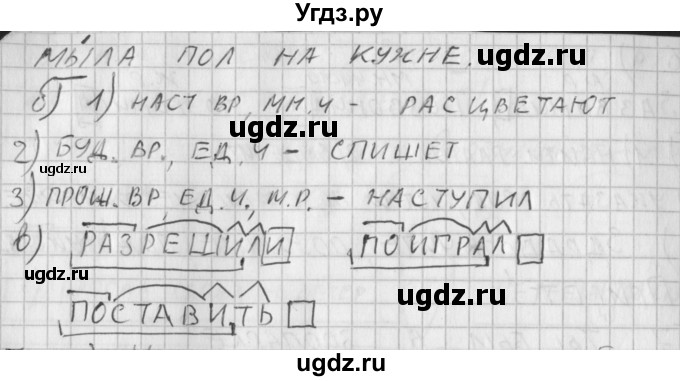 Угдз.ру
МЫ́ЛА ПОЛ НА КУХНЕ.
б) 1) НАСТ ВР, МН.Ч - РАСЦВЕТАЮТ
ugdz.ru
2) БУД. ВР., ЕД.Ч - СПИШЕТ
ugdz.ru ugdz.ru
3) ПРОШ. ВР, ЕД.Ч, М.Р. - НАСТУПИЛ
ugdz.ru
в) РАЗРЕШИЛИ ПОИГРАЛ
ugdz.ru ugdz.ru
ПОСТАВИТЬ
ugdz.ru
ugdz.ru